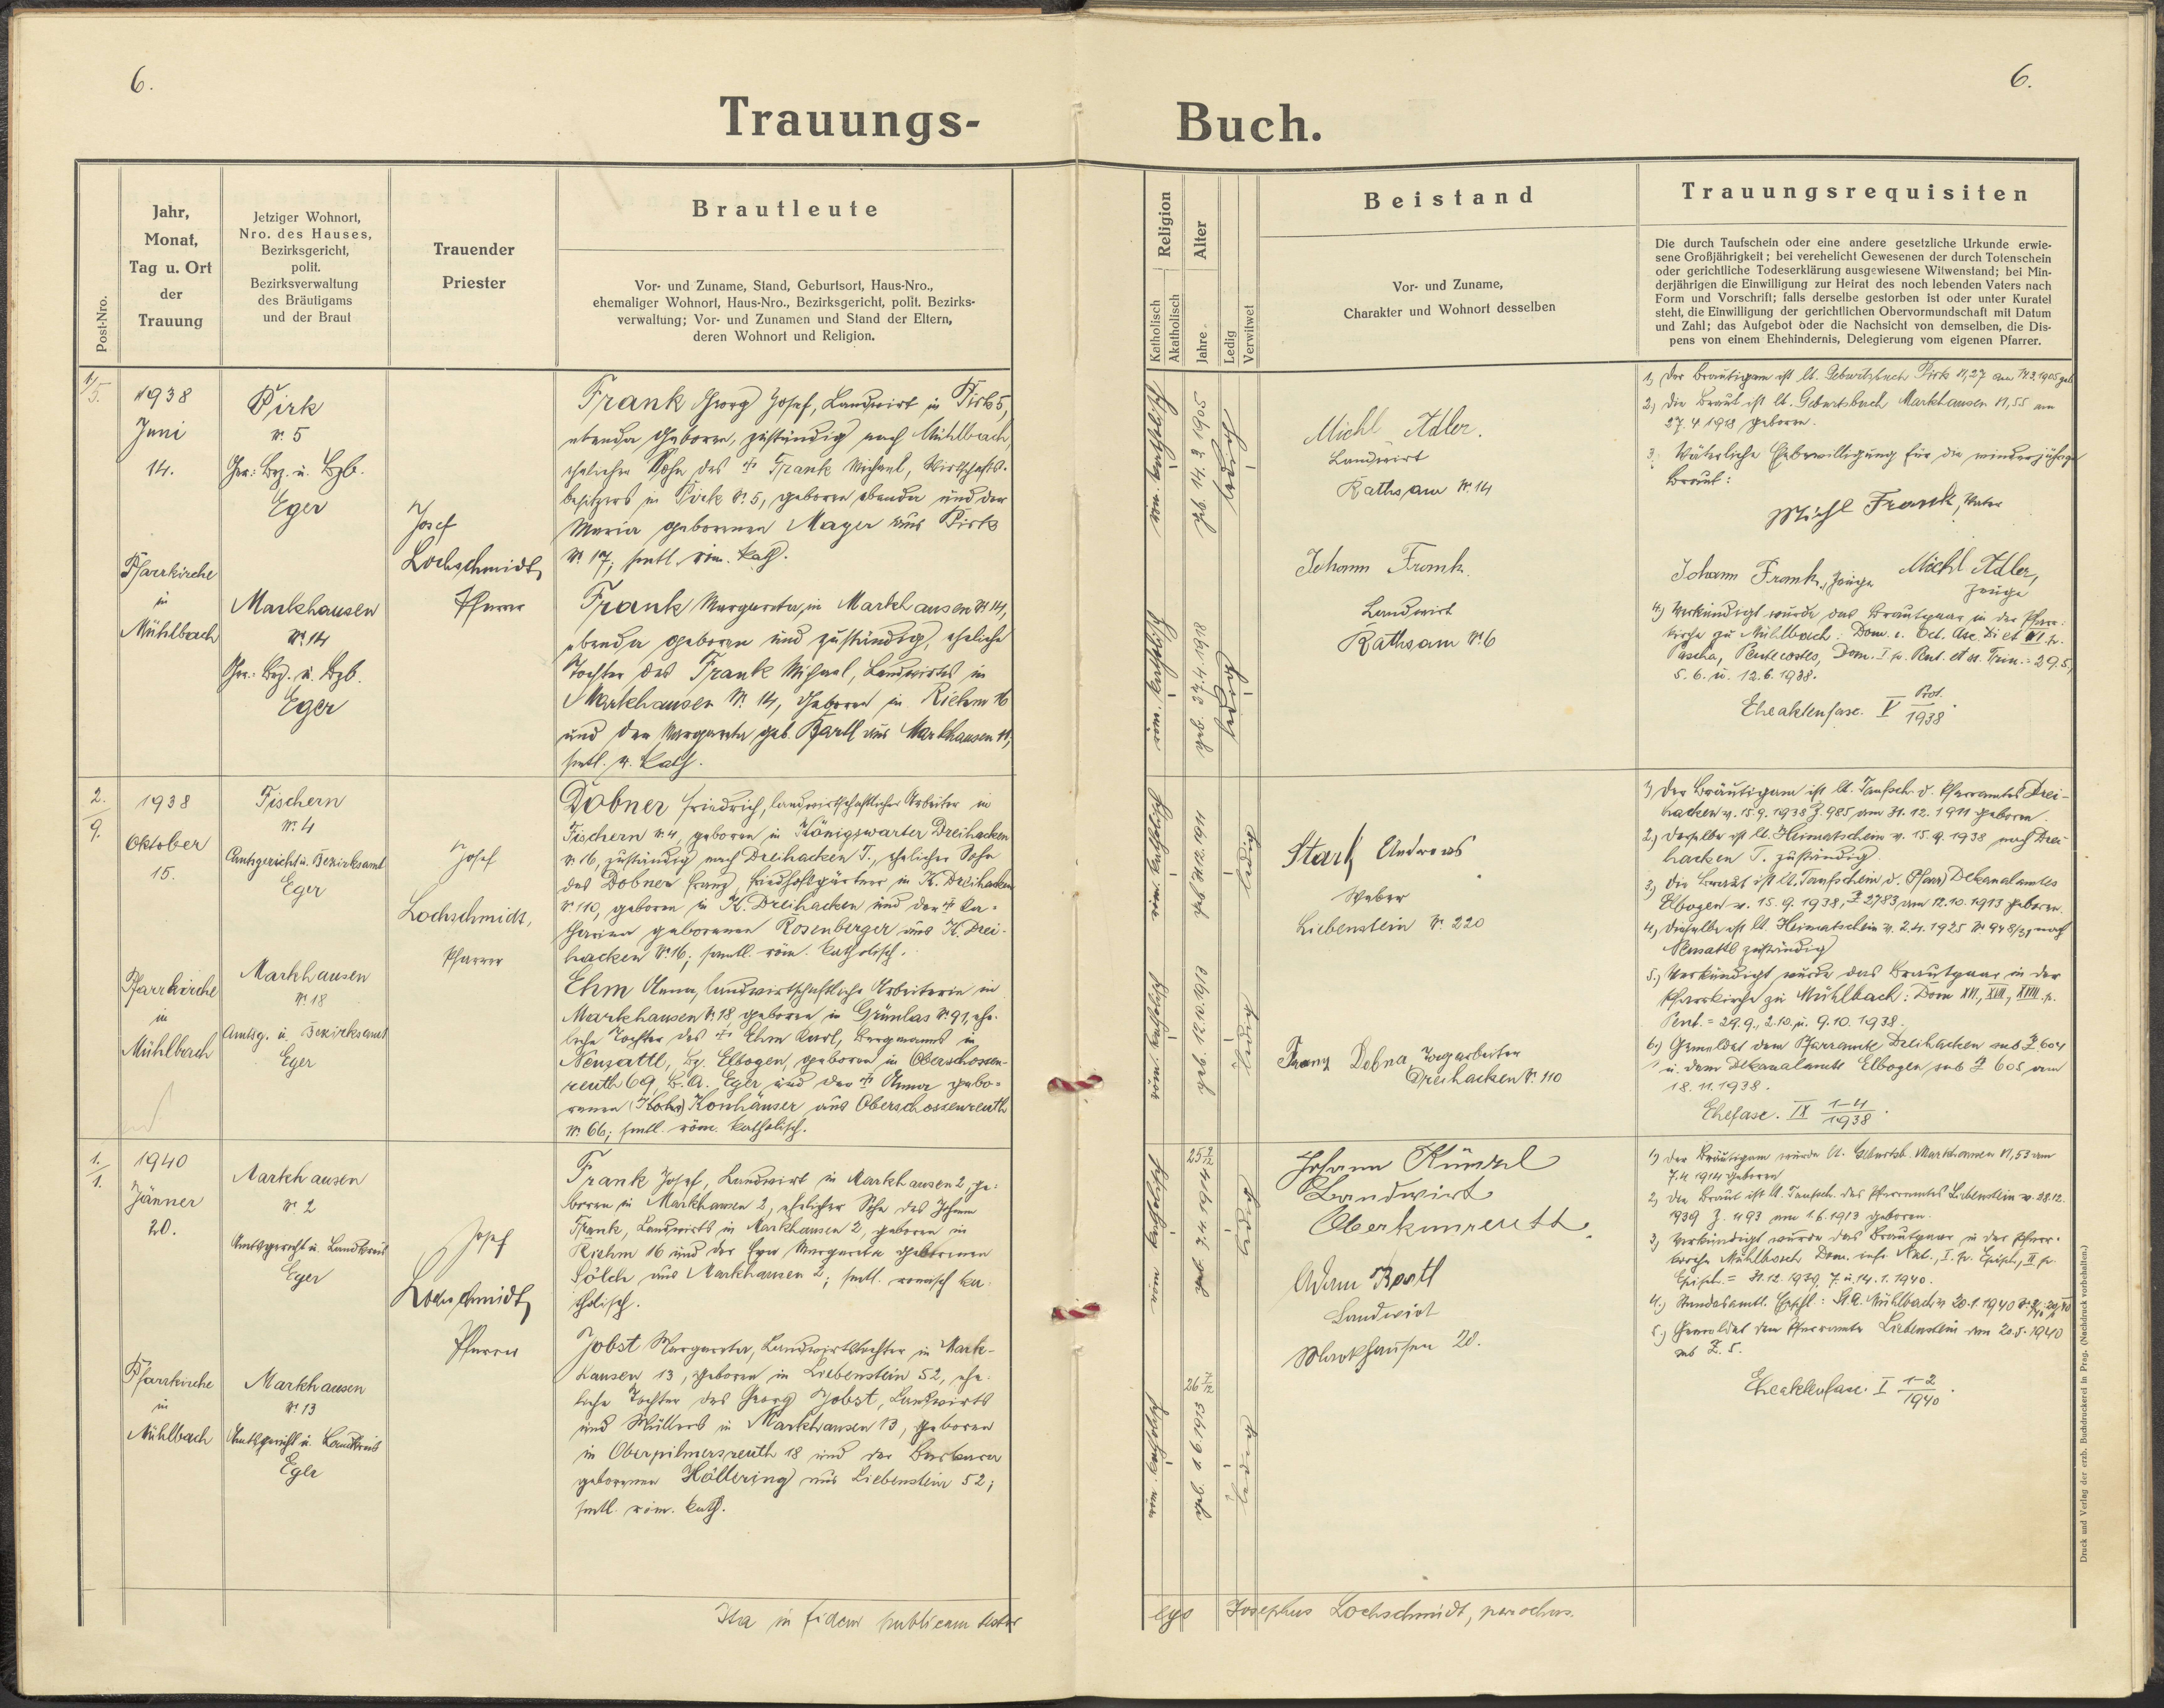 6.
6.
Trauungs-
Buch.
Post-Nro.
Jahr,
Monat,
Tag u. Ort
der
Trauung
Jetziger Wohnort,
Nro. des Hauses,
Bezirksgericht,
polit.
Bezirksverwaltung
des Bräutigams
und der Braut
Trauender
Priester
Brautleute
Vor- und Zuname, Stand, Geburtsort, Haus-Nro.,
ehemaliger Wohnort, Haus-Nro., Bezirksgericht, polit. Bezirks-
verwaltung; Vor- und Zunamen und Stand der Eltern,
deren Wohnort und Religion.
Religion
Katholisch
Akatholisch
Alter
Jahre
Ledig
Verwitwet
Beistand
Vor- und Zuname,
Charakter und Wohnort desselben
Trauungsrequisiten
Die durch Taufschein oder eine andere gesetzliche Urkunde erwie-
sene Großjährigkeit; bei verehelicht Gewesenen der durch Totenschein
oder gerichtliche Todeserklärung ausgewiesene Witwenstand; bei Min-
derjährigen die Einwilligung zur Heirat des noch lebenden Vaters nach
Form und Vorschrift; falls derselbe gestorben ist oder unter Kuratel
steht, die Einwilligung der gerichtlichen Obervormundschaft mit Datum
und Zahl; das Aufgebot oder die Nachsicht von demselben, die Dis-
pens von einem Ehehindernis, Delegierung vom eigenen Pfarrer.
1/5.
1938
Juni
14.
Pfarrkirche
in
Mühlbach
Pirk
Nr. 5
Ger. Bez. u. Bzb.
Eger
Markhausen
Nr. 14
Ger. Bez. u. Bzb.
Eger
Josef
Lochschmidt,
Pfarrer
Frank Georg Josef, Landwirt in Pirk 5,
ebenda geboren, zuständig nach Mühlbach,
ehelicher Sohn des † Frank Michael, Wirtschafts-
besitzers in Pirk Nr. 5, geboren ebenda und der
Maria geborenen Mayer aus Pirk
Nr. 17; smtl. röm. kath.
Frank Margareta, in Markhausen Nr. 14,
ebenda geboren und zuständig, eheliche
Tochter des Frank Michael, Landwirts in
Markhausen Nr. 14, geboren in Riehm 16
und der Margareta geb. Bartl aus Markhausen 11;
smtl. r. kath.
röm. katholisch
geb. 14. 3. 1905
ledig
röm. katholisch
geb. 27. 4. 1918
ledig
Michl Adler.
Landwirt
Rathsam Nr. 14
Johann Frank
Landwirt
Rathsam Nr. 6
1, Der Bräutigam ist lt. Geburtsbuch Pirk II, 27 am 14.3.1905 geb.
2, Die Braut ist lt. Geburtsbuch Markhausen II, 55 am
27. 4 1918 geboren.
3, Väterliche Ehebewilligung für die minderjährige
Braut:
Michl Frank, Vater
Johann Frank, Zeuge Michl Adler,
Zeuge
4, Verkündigt wurde das Brautpaar in der Pfarr-
kirche zu Mühlbach: Dom. i. Oct. Asc. Di et VI. p.
Pascha, Pentecostes, Dom. I p. Pent. et ss. Trin. = 29.5.,
5. 6. u. 12. 6. 1938.
Eheaktenfasc. V Prot. 1938.
2.
9.
1938
Oktober
15.
Pfarrkirche
in
Mühlbach
Fischern
Nr. 4
Amtsgericht u. Bezirksamt
Eger
Markhausen
Nr. 18
Amtsg. u. Bezirksamt
Eger
Josef
Lochschmidt,
Pfarrer
Dobner Friedrich, landwirtschaftlicher Arbeiter in
Fischern Nr. 4, geboren in Königswarter Dreihacken
Nr. 16, zuständig nach Dreihacken T., ehelicher Sohn
des Dobner Franz, Friedhofsgärtner in K. Dreihacken
Nr. 110, geboren in K. Dreihacken und der † Ka-
tharina geborenen Rosenberger aus K. Drei-
hacken Nr. 16; samtl. röm. katholisch.
Ehm Anna, landwirtschaftliche Arbeiterin in
Markhausen Nr. 18 geboren in Grünlas Nr. 91, ehe-
liche Tochter des † Ehm Karl, Bergmanns in
Neusattl, Bz. Elbogen, geboren in Oberschossen-
reuth 69, B.A. Eger und der † Anna gebo-
renen Konhäuser aus Oberschossenreuth
Nr. 66; smtl. röm. katholisch.
röm. katholisch
geb. 31. 12. 1911
ledig
röm. katholisch
geb. 12. 10. 1913
ledig
Stark Andreas
Weber
Liebenstein Nr. 220
Franz Dobna, Sägearbeiter
Dreihacken Nr. 110
1, Der Bräutigam ist lt. Taufsch. d. Pfarramtes Drei-
hacken v. 15. 9. 1938 Z. 985 am 31. 12. 1911 geboren.
2, Derselbe ist lt. Heimatschein v. 15. 9. 1938 nach Drei-
hacken T. zuständig.
3, Die Braut ist lt. Taufschein d. Pfarr Dekanalamtes
Elbogen v. 15. 9. 1938, Z. 2783 am 12. 10. 1913 geboren.
4, Dieselbe ist lt. Heimatschein v. 2. 4. 1925 Nr. 948/31 nach
Neusattl zuständig
5.) Verkündigt wurde das Brautpaar in der
Pfarrkirche zu Mühlbach: Dom XVI, XVII, XVIII. p.
Pent. = 29. 9., 2. 10. u. 9. 10. 1938.
6.) Gemeldet dem Pfarramte Dreihacken sub Z 604
u. dem Dekanalamte Elbogen sub Z 605 am
18. 11. 1938.
Ehefasc. IX 1-4 1938.
1.
1.
1940
Jänner
20.
Pfarrkirche
in
Mühlbach
Markhausen
Nr. 2
Amtsgericht u. Landkreis
Eger
Markhausen
Nr. 13
Amtsgericht u. Landkreis
Eger
Josef
Lochschmidt,
Pfarrer
Frank Josef, Landwirt in Markhausen 2, ge-
boren in Markhausen 2, ehelicher Sohn des Johann
Frank, Landwirts in Markhausen 2, geboren in
Riehm 16 und der Eva Margareta geborenen
Sölch aus Markhausen 2; smtl. römisch ka-
tholisch.
Jobst Margareta, Landwirtstochter in Mark-
hausen 13, geboren in Liebenstein 52, ehe-
liche Tochter des Georg Jobst, Landwirts
und Müllers in Markhausen 13, geboren
in Oberpilmersreuth 18 und der Barbara
geborenen Höllering aus Liebenstein 52;
smtl. röm. kath.
röm. katholisch
25 9/12
geb. 7. 4. 1914
ledig
röm. katholisch
26 7/12
geb. 1. 6. 1913
ledig
Johann Künzel
Landwirt
Oberkunreuth.
Adam Bartl
Landwirt
Markhausen 20.
1, Der Bräutigam wurde lt. Geburtsb. Markhausen II, 53 am
7. 4. 1914 geboren
2, Die Braut ist lt. Taufsch. des Pfarramtes Liebenstein v. 28. 12.
1939 Z. 493 am 1. 6. 1913 geboren.
3, Verkündigt wurde das Brautpaar in der Pfarr-
kirche Mühlbach Dom. infr. Nat., I. p. Epiph., II p.
Epiph. = 31. 12. 1939, 7. u. 14. 1. 1940.
5.) Gemeldet dem Pfarramte Liebenstein am 20. 5. 1940
sub Z. 5.
Eheaktenfasc. I 1-2 1940.
Ita in fidem publicam testor
ego Josephus Lochschmidt, parochus.
Druck und Verlag der erzb. Buchdruckerei in Prag. (Nachdruck vorbehalten.)